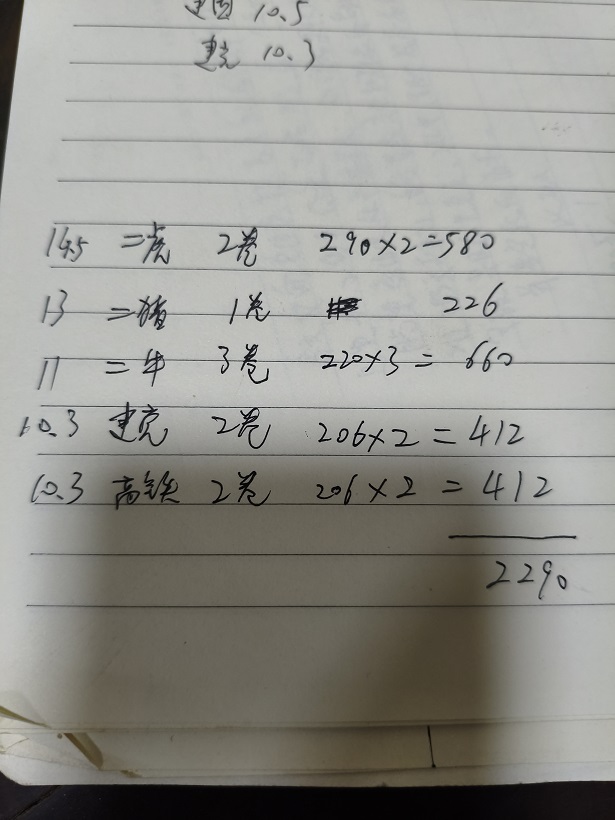 建国 10.5
建亮 10.3
14.5 二虎 2卷 290×2=580
13 二猪 1卷 226
11 二牛 3卷 220×3= 660
10.3 建亮 2卷 206×2=412
10.3 高铁 2卷 206×2=412
2290